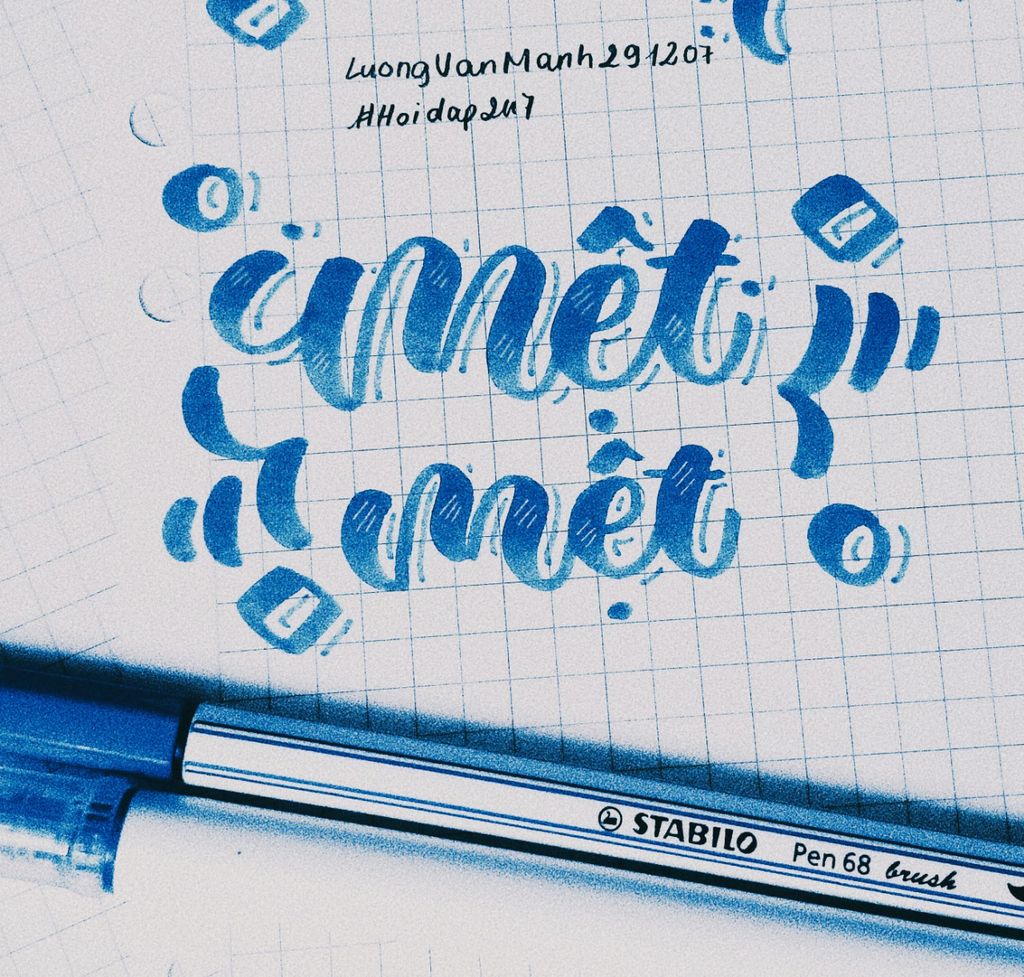 LuongVanManh291207
#Hoidap247
cmệt
mệt
STABILO Pen 68 brush